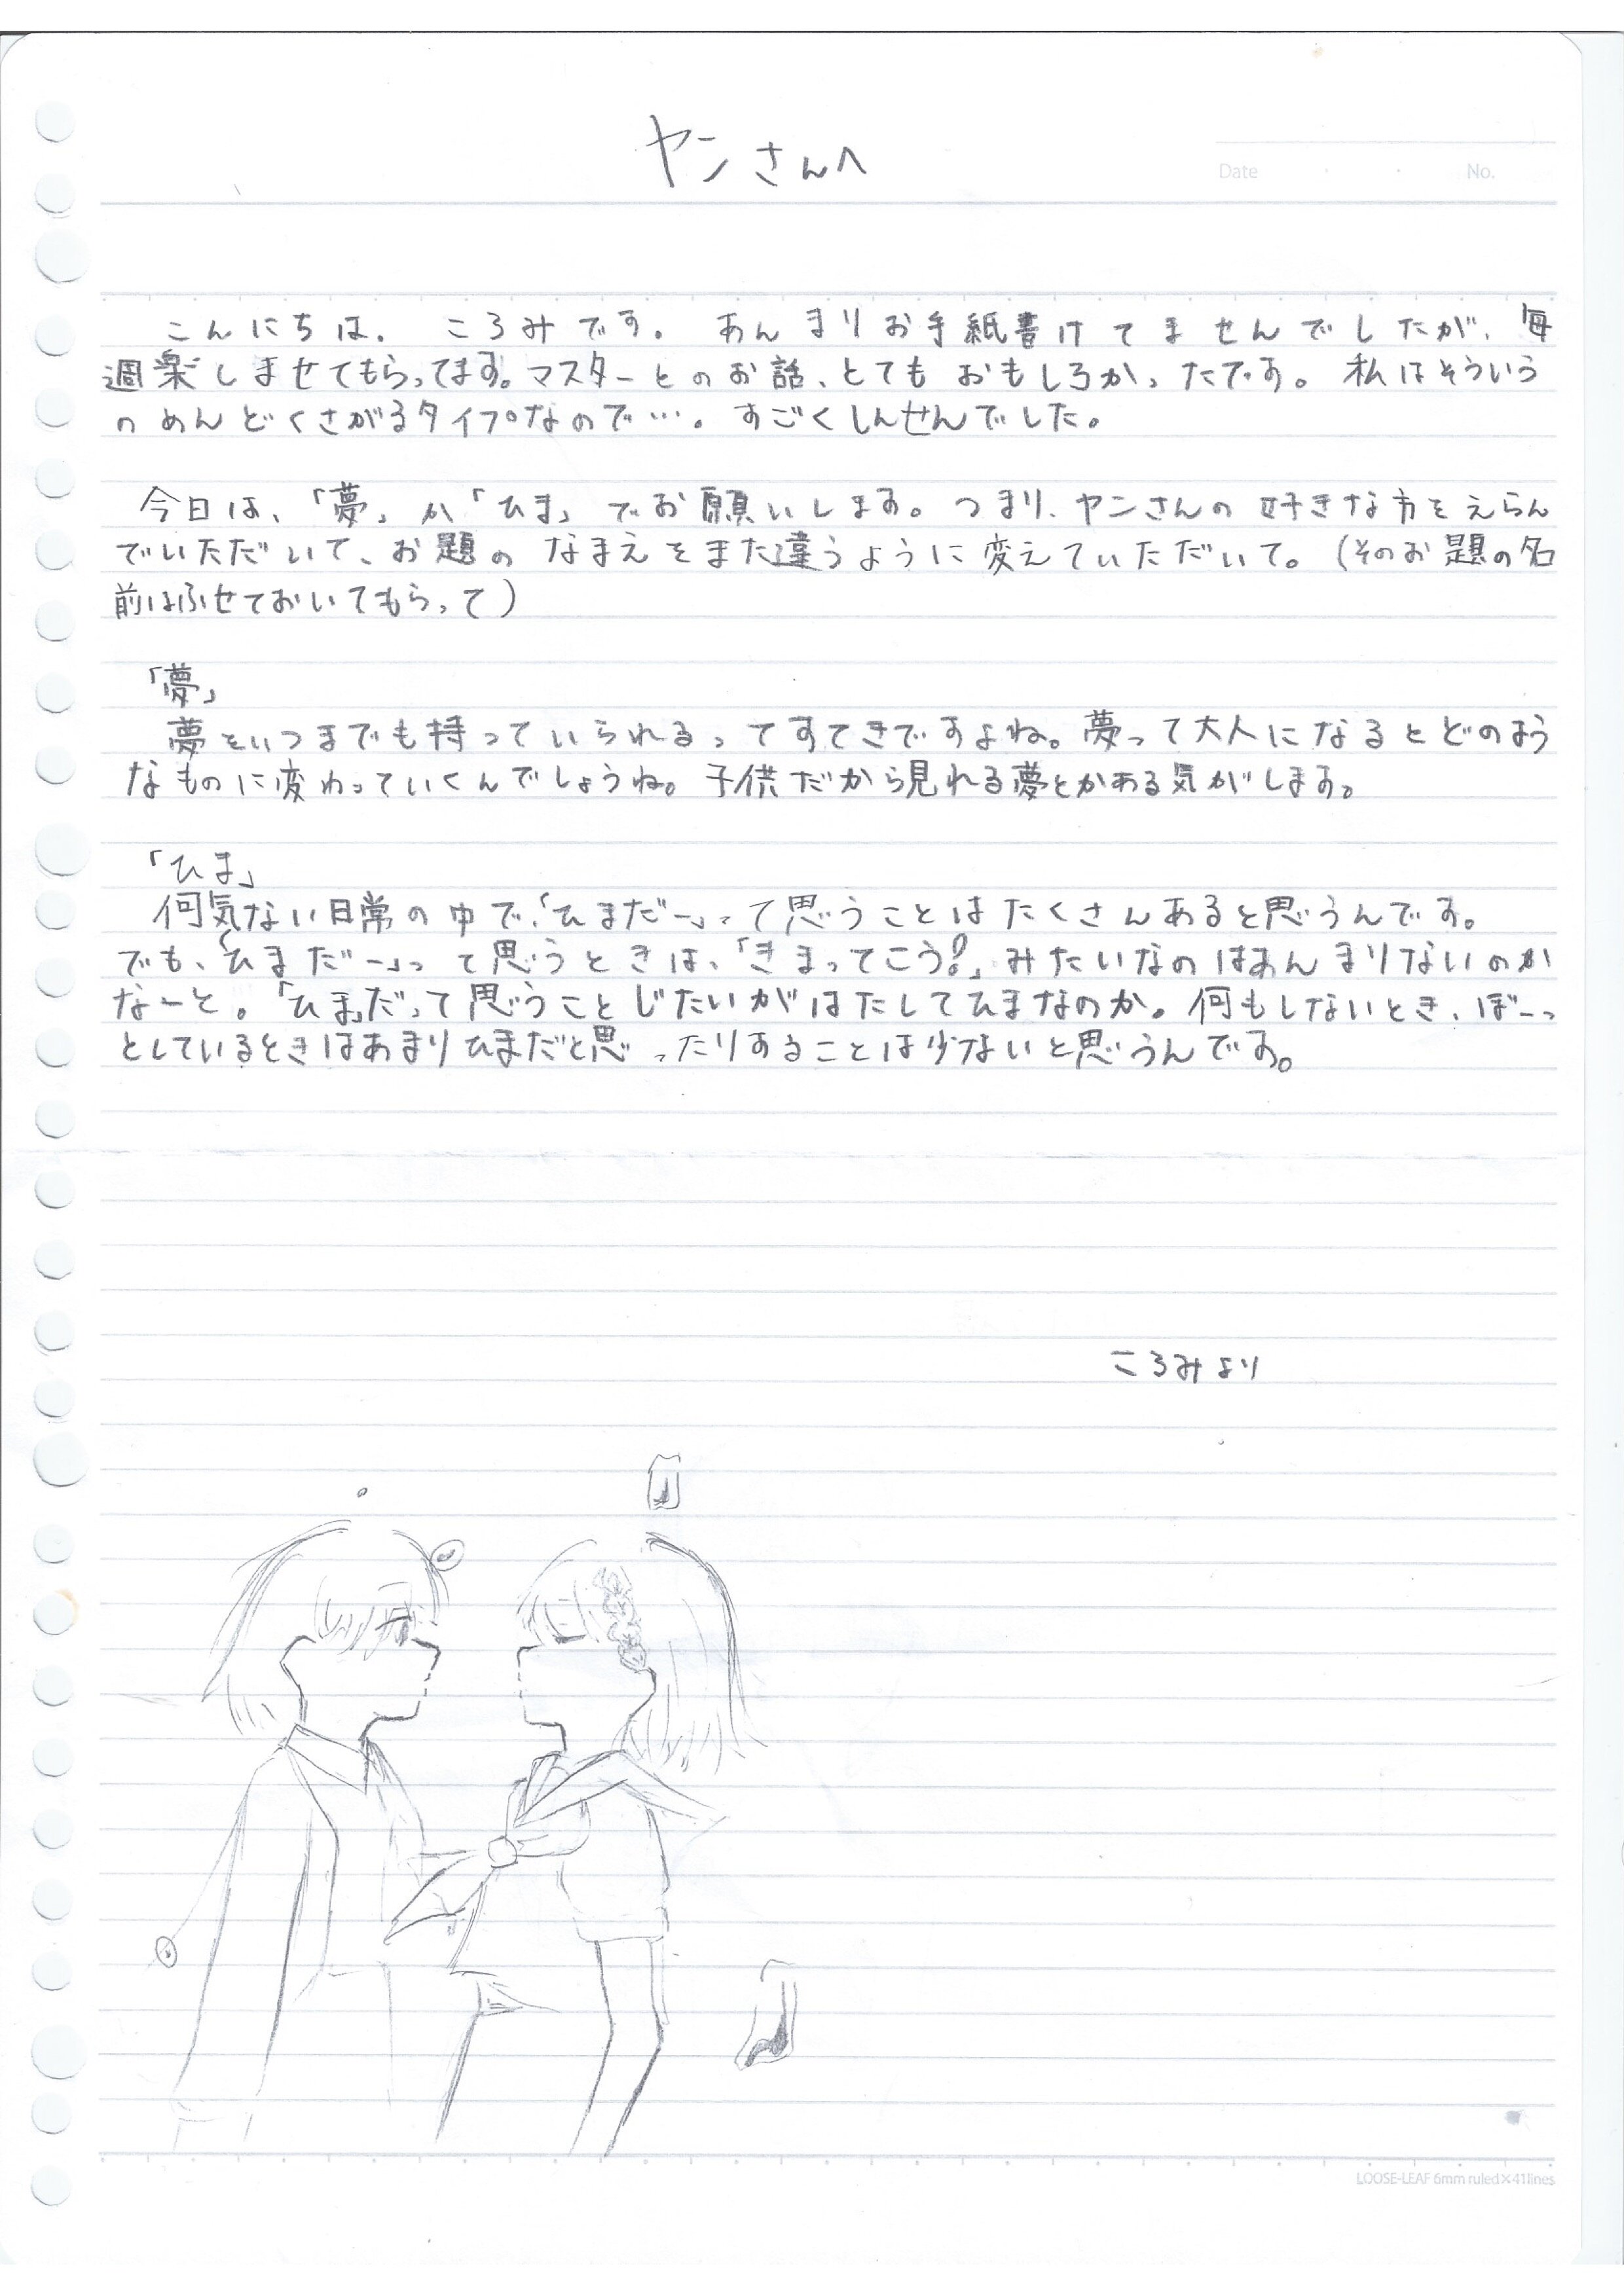 ヤンさんへ
Date
No.
こんにちは。 ころみです。 あんまりお手紙書けてませんでしたが、毎
週楽しませてもらってます。マスターとのお話、とてもおもしろかったです。 私はそういう
のめんどくさがるタイプなので…。 すごくしんせんでした。
今日は、「夢」か「ひま」でお願いします。つまり、ヤンさんの好きな方をえらん
でいただいて、お題のなまえをまた違うように変えていただいて。(そのお題の名
前はふせておいてもらって)
「夢」
夢をいつまでも持っていられるってすてきですよね。夢って大人になるとどのよう
なものに変わっていくんでしょうね。子供だから見れる夢とかある気がします。
「ひま」
何気ない日常の中で、「ひまだー」って思うことはたくさんあると思うんです。
でも、「ひまだー」って思うときは、「きまってこう!」みたいなのはあんまりないのか
なーと。「ひま」だって思うことじたいがはたしてひまなのか。何もしないとき、ぼーっ
としているときはあまりひまだと思ったりすることは少ないと思うんです。
ころみより
LOOSE-LEAF 6mm ruled×41lines